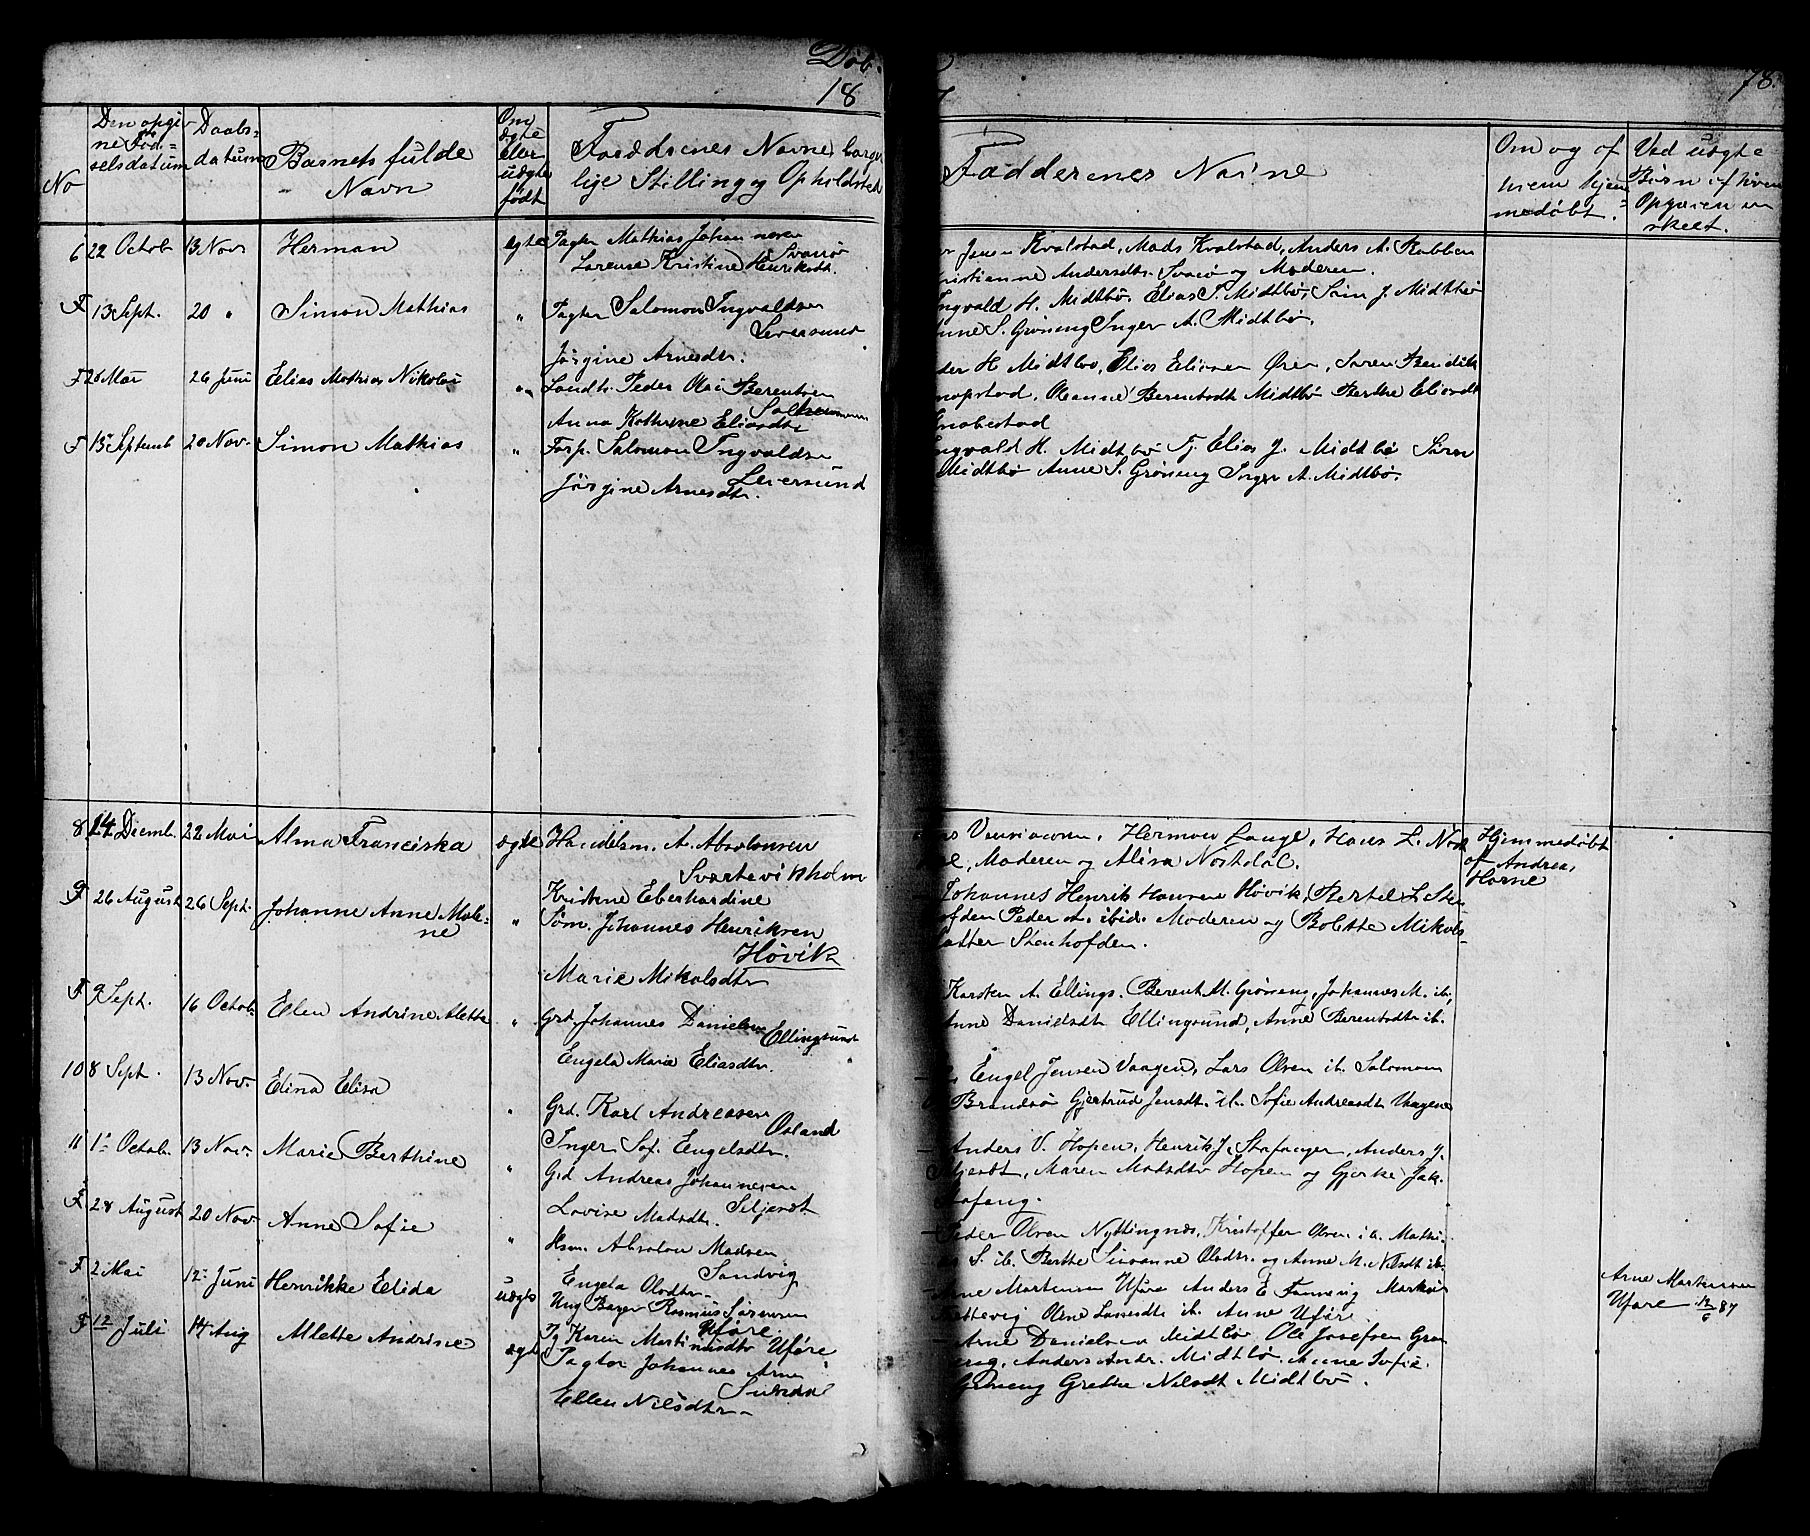 Døb.
18
78.
No
Den opgiv
ne Fød=
selsdatum
Daabs=
datum
Barnets fulde
Navn
Om
ægte
eller
uægte
født
Forældrenes Navne borger
lige Stilling og Opholdsted
Faddernes Navne
Om og af
hvem hjem
medøbt.
Ved uægte
Børn af hvem
Opgaven er
skeet.
6 22 Octob 13 Nov Herman ægte Pagter Mathias Johannesen
Svanø
Lorense Kristine Henriksdt.
Jensen Kvalstad, Mads Kvalstad, Anders A. Rabben
Kristianne Andersdtr. Svanø og Moderen.
F 13 Sept. 20 " Simon Mathias " Pagter Salomon Ingvaldsen
Leversund
Jørgine Arnesdtr.
Ingvald H. Midtbø. Elias J. Midtbø, Sørn J. Midtbø
Anne S. Grøneng Inger A. Midtbø.
F 26 Mai 26 Juni Elias Mathias Nikolai " Landh. Peder Olai Berentsen
Anna Kathrine Eliasdtr
H Midtbø, Elias Eliasen Øren, Søren Bendik
Knapstad, Oleanne Berentsdt Midtbø Berthe Eliasdt
Knabestad
F 15 Septemb 20 Nov. Simon Mathias " Forp. Salomon Ingvaldsen
Leversund
Jørgine Arnesdtr.
Ingvald H. Midtbø Elias J. Midtbø Søren
Midtbø Anne S. Grøneng Inger A. Midtbø.
8 14 Decmb. 22 Mai Alma Franciska ægte Handelsm. A. Absolonsen
Svartevikholm
Kristine Eberhardine
Herman Lange, Hans L. Nord
Moderen og Alisa Nordal.
Hjemmedøbt
af Andrea
Horne
F 26 August 26 Sept. Johanne Anne Male=
ne
" Søm. Johannes Henriksen
Høvik
Marie Mikalsdtr
Johannes Henrik Hansen Høvik, Bertel L. Sten
hofden Peder A. ibid. Moderen og Bolette Mikals=
datter Stenhofden.
F 9 Sept. 16 Octob. Ellen Andrine Aletta " Grd. Johannes Danielsen
Ellingsund
Engela Marie Eliasdtr.
Karsten A. Ellings. Berent M. Grøneng, Johannes M. ib.
Anne Danielsdtr Ellingsund, Anne Berentsdtr ib.
10 8 Sept. 13 Nov. Elina Elisa " Grd. Karl Andreasen
Osland
Inger Sof. Engelsdtr.
Engel Jensen Vaagen, Lars Olsen ib. Salomon
Brandsø Gjertrud Jensdt. ib. Sofie Andreasdt Vaagene
11 1 Octob. 13 Nov. Marie Berthine " Grd Andreas Johannesen
Lovise Madsdtr.
Anders V. Hopen, Henrik J. Stafanger, Anders J.
Maren Madsdtr Hopen og Gjerke Jak.
Stafang.
F 28 August 20 Nov Anne Sofie " Hsm. Absolon Madsen
Sandvig
Engela Olsdtr.
Peder Olsen Nyttingnes, Kristoffer Olsen ib. Mathi
S. ib. Berthe Susanne Olsdtr. og Anne M. Nilsdt ib.
F 2 Mai 12 Juni Henrikke Elida uægte Ung Rasmus Sørensen
Uføre
Pg Karen Martinusdtr Uføre
Arne Martensen Uføre Anders E Fanevig Markus
Olme Lassesdt ib. Anne Uføre.
Arne Martensen
Uføre 12/6 87
F 12 Juli 14 Aug Alette Andrine ægte Pagter Johannes Arne
Ellen Nilsdtr
Arne Danielsen Midtbø, Ole Josefsen Grø
neng, Anders Andr. Midtbø. Anne Sofie
Grøneng Grethe Nilsdt Midtbø.